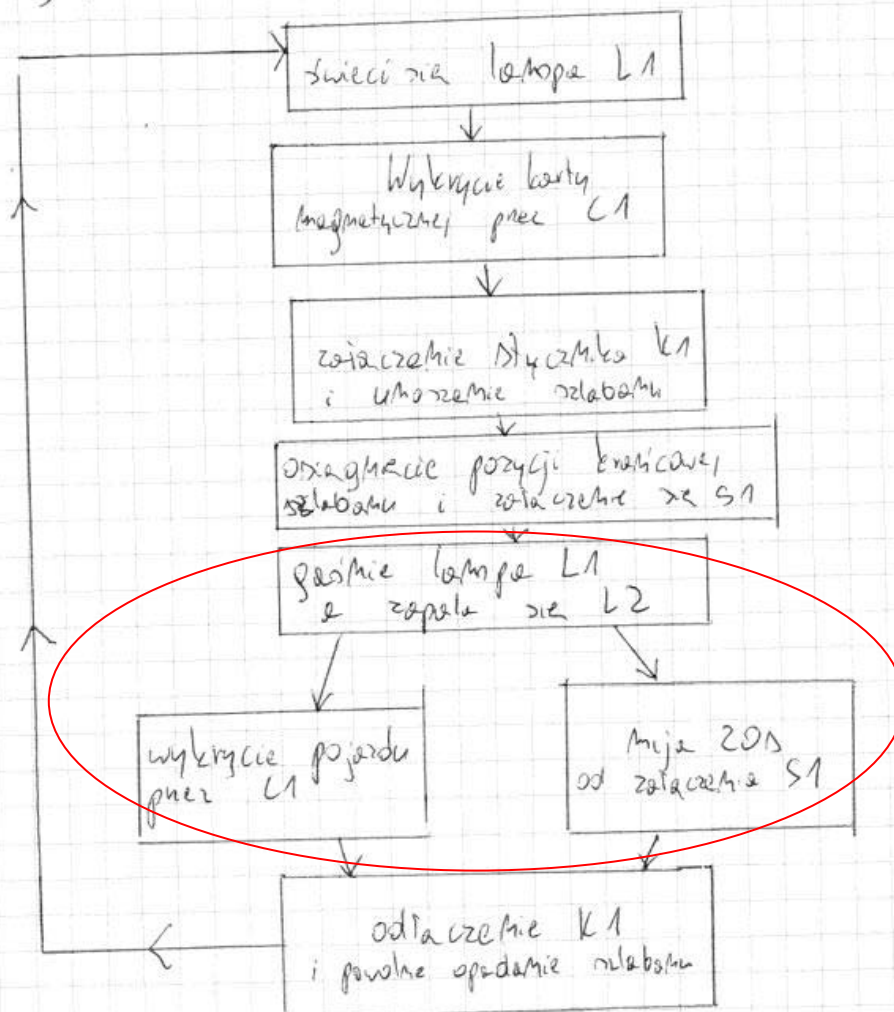 świeci się lampa L1
Wykrycie karty
magnetycznej przez C1
załączenie stycznika K1
i unoszenie szlabanu
osiągnięcie pozycji krańcowej
szlabanu i załączenie się S1
gaśnie lampa L1
a zapala się L2
wykrycie pojazdu
przez C1
mija 20s
od załączenia S1
odłączenie K1
i powolne opadanie szlabanu